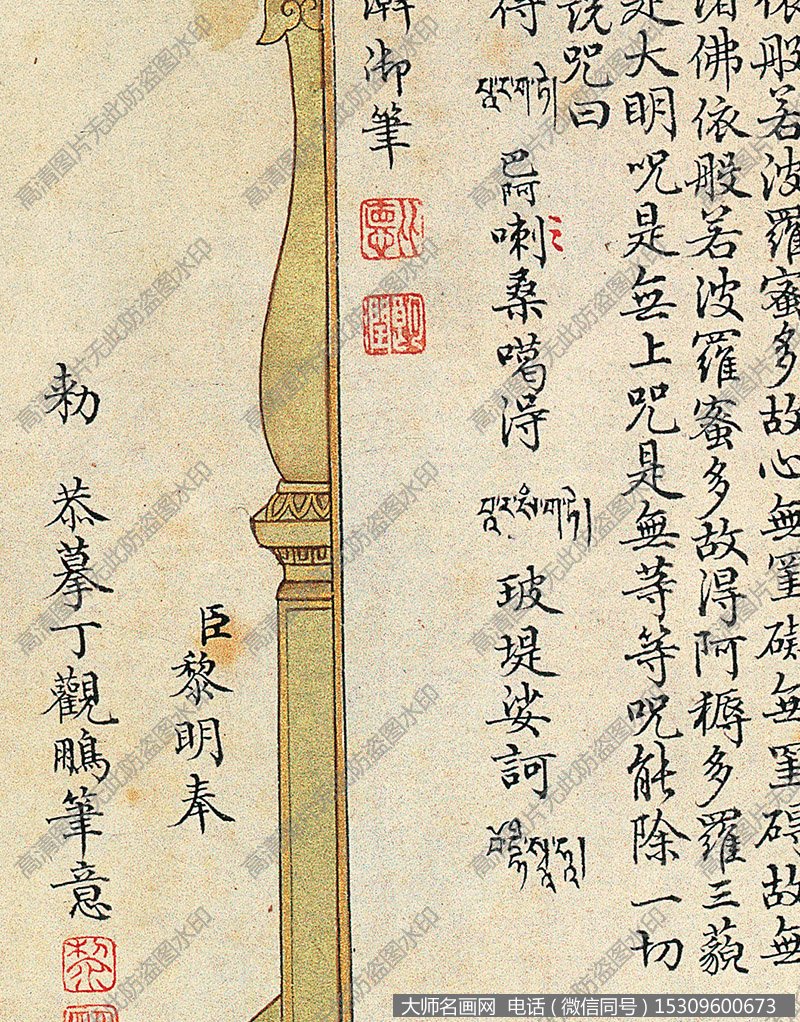 依般若波羅蜜多故心無罣碍無罣碍故無
諸佛依般若波羅蜜多故得阿耨多羅三藐
是大明呪是無上呪是無等等呪能除一切
說呪曰
得
巴阿喇桑噶得
玻堤娑訶
澣御筆
臣黎明奉
勑 恭摹丁觀鵬筆意
高清图片无此防盗图水印
大师名画网 电话（微信同号）15309600673